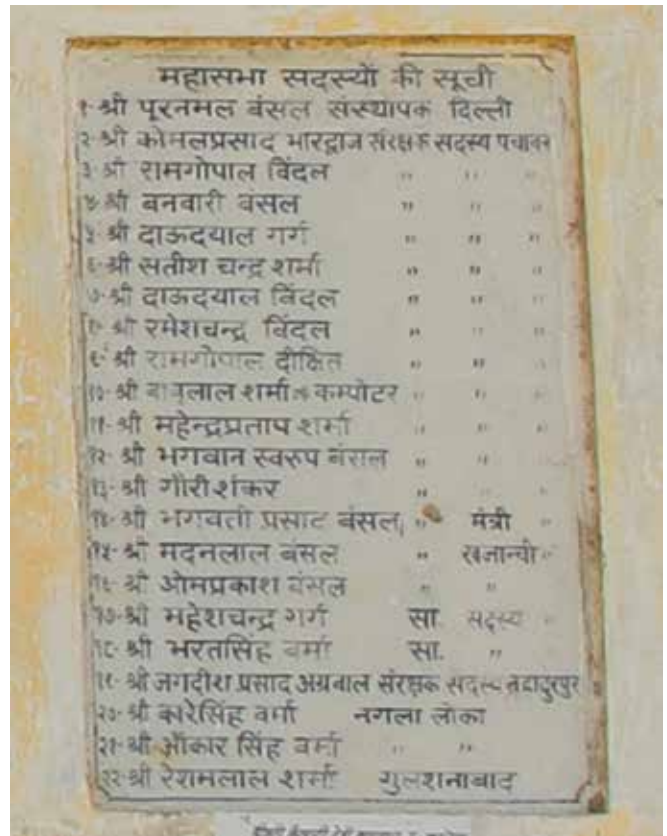 महासभा सदस्यों की सूची
१- श्री पूरनमल बंसल संस्थापक दिल्ली
२- श्री कोमलप्रसाद भारद्वाज संरक्षक सदस्य पचावर
३- श्री रामगोपाल विंदल " " "
४- श्री बनवारी बंसल " " "
५- श्री दाऊदयाल गर्ग " " "
६- श्री सतीश चन्द्र शर्मा " " "
७- श्री दाऊदयाल विंदल " " "
८- श्री रमेशचन्द्र विंदल " " "
९- श्री रामगोपाल दीक्षित " " "
१०- श्री बाबूलाल शर्मा कम्पोटर " " "
११- श्री महेन्द्रप्रताप शर्मा " " "
१२- श्री भगवान स्वरुप बंसल " " "
१३- श्री गौरीशंकर " " "
१४- श्री भगवती प्रसाद बंसल " मंत्री "
१५- श्री मदनलाल बंसल " खजान्ची "
१६- श्री ओमप्रकाश बंसल " "
१७- श्री महेशचन्द्र गर्ग सा. सदस्य "
१८- श्री भरतसिंह वर्मा सा. "
१९- श्री जगदीश प्रसाद अग्रवाल संरक्षक सदस्य बहादुरपुर
२०- श्री कारेसिंह वर्मा नगला लोका
२१- श्री ओंकार सिंह वर्मा " "
२२- श्री रेशमलाल शर्मा गुलशनाबाद